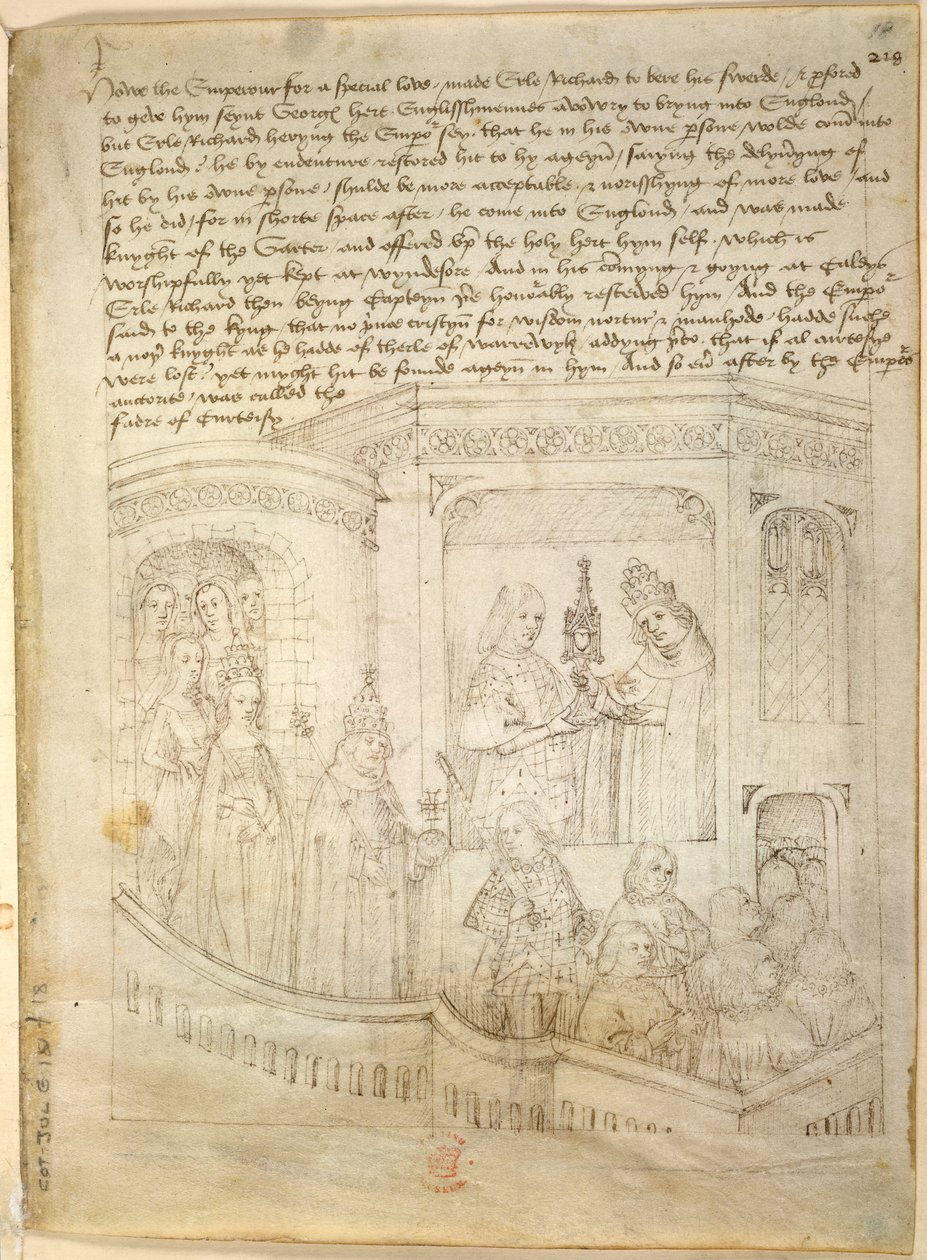 18
218
Nowe the Emperour for a special love, made Erle Richard to bere his swerde, & pfored
to geve hym seynt Georges hert Englisshmennes Avowry to bryng into Englond
but Erle Richard heryng the Empor sey, that he in his owne psone wolde com into
Englond, he by endenture restored hit to hy ageyn, saiyng the delyvyng of
hit by his owne psone, shulde be more acceptable & norisshyng of more love, and
so he did, for in shorte space after, he come into Englond, and was made
knyght of the Garter, and offered up the holy hert hym self, which is
worshipfully yet kept at wyndesore, And in his comyng & goyng at Caleys
Erle Richard then beyng Capteyn þe honorably resceived hym, And the Empor
said to the kyng, that no pnce cristyn for wisdom nortur & manhode, hadde suche
a noþ knyght as he hadde of therle of warrewyk, addyng þto, that if al curtesye
were lost, yet myght hit be founde ageyn in hym, And so ev after by the Empors
auctorite, was called the
fadre of Curteisy.
COT. JUL E.IV / 18
BRITISH
MUSEUM